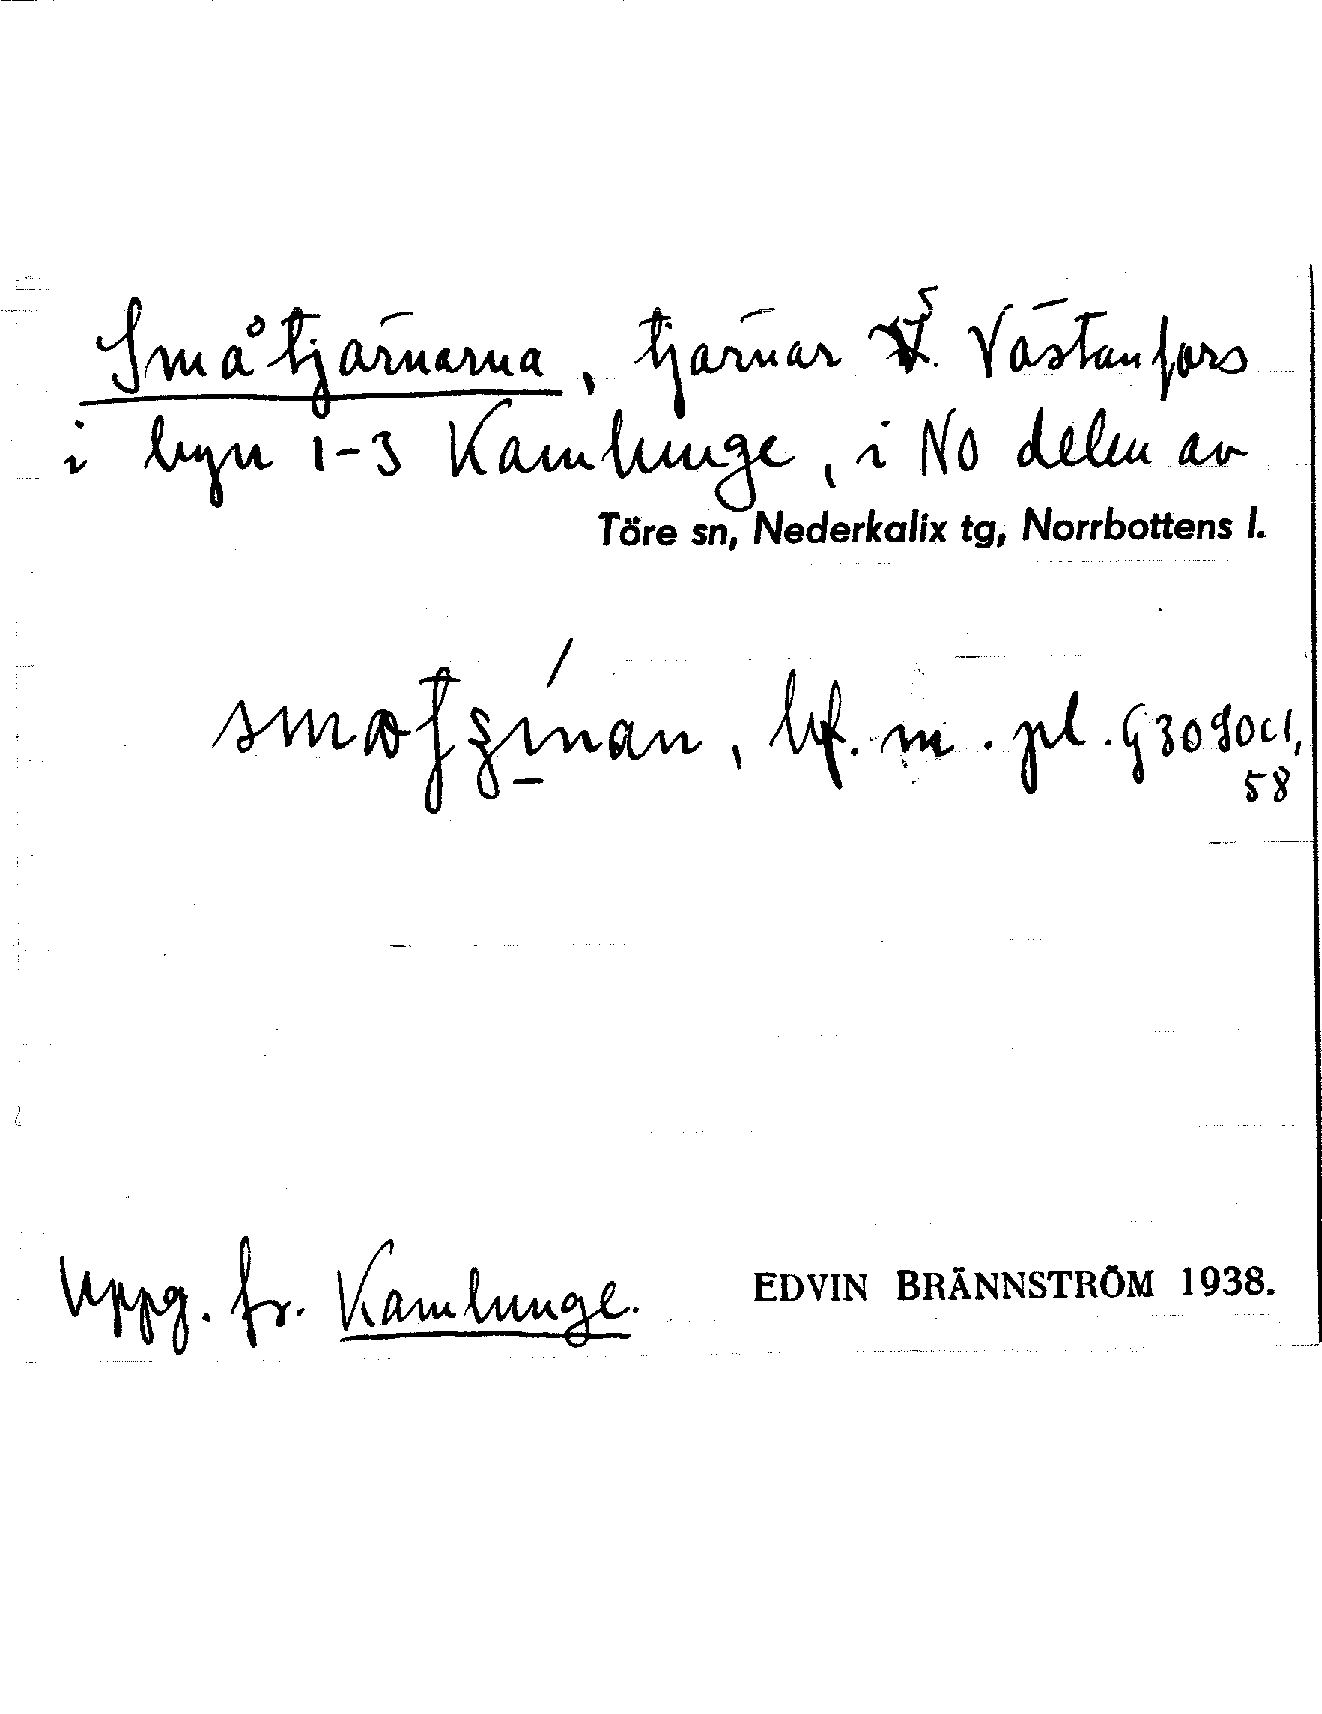 Småtjärnarna, tjärnar S. Västanfors
i byn 1-3 Kamlunge, i NO delen av
Töre sn, Nederkalix tg, Norrbottens l.
bf. m. pl.
58
Uppg. fr. Kamlunge.
EDVIN BRÄNNSTRÖM 1938.